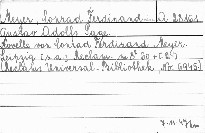 Meyer, Conrad Ferdinand
Gustav Adolfs Page.
Novelle von Conrad Ferdinand Meyer.
Leipzig (s.a.: Reclam
(Reclams Universal-Bibliothek, Nr. 6945)